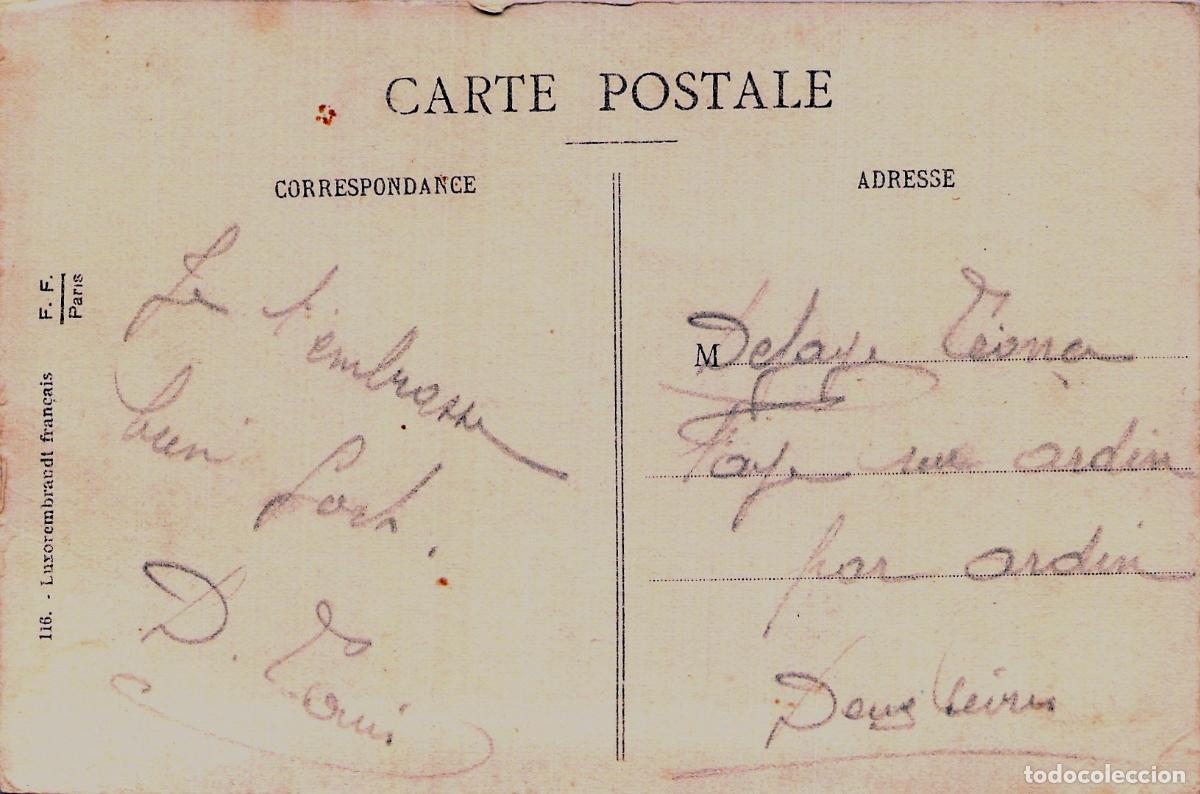 CARTE POSTALE
CORRESPONDANCE
Je t'embrasse
bien fort.
D. Louis
ADRESSE
M Defaye
Faye sur ardin
par ardin
Deux Sèvres
116. - Luxorembrandt français F. F. Paris
todocoleccion